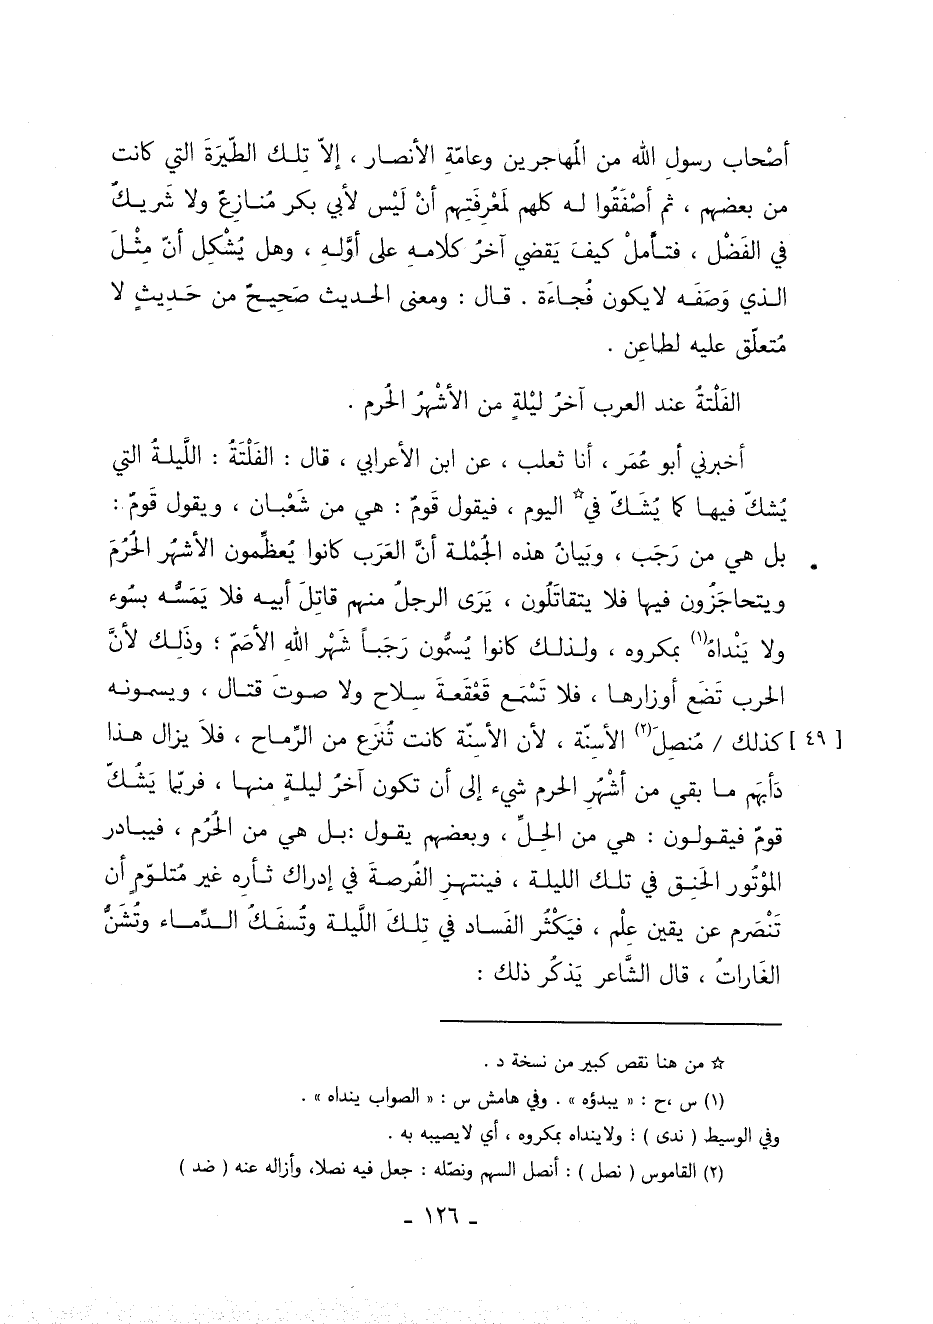 أصْحاب رسول الله من المُهاجرين وعامّةِ الأنصـار ، إلاّ تِلـك الطّيرَةَ التي كانت
من بعضهم ، ثم أصْفَقُوا لـه كلهم لمَعْرفَتِهم أنْ لَيْس لأبي بكر مُنـازِعٌ ولا شَريـكٌ
في الفَضْل ، فتـأملْ كيفَ يَقضي آخرُ كلامـهِ على أوّلـهِ ، وهل يُشْكل أنّ مِثْـلَ
الـذي وَصَفَـه لايكون فُجـاءَة . قـال : ومعنى الحـديث صَحِيـحٌ من حَـديثٍ لا
مُتعلّق عليه لطاعِن .
الفَلْتةُ عند العرب آخرُ ليْلةٍ من الأشْهُرُ الحُرم .
أخبرني أبو عُمَر ، أنا ثعلب ، عن ابن الأعرابي ، قال : الفَلْتَةُ : اللَّيلـةُ التي
يُشكّ فيهـا كما يُشَـكّ في☆ اليوم ، فيقول قَومٌ : هي من شَعْبـان ، ويقول قَومٌ :
بل هي من رَجَب ، وبَيانُ هذه الجُمْلـة أنَّ العَرَب كانوا يُعظِّمون الأشهُر الحُرُمَ
ويتحاجَزُون فيها فلا يتقاتَلُون ، يَرَى الرجلُ منهم قاتِلَ أبيـه فلا يَمَسُّـه بسُوء
ولا يَنْداهُ(١) بمكروه ، ولـذلك كانوا يُسمُّون رَجَبـاً شَهْر اللهِ الأصَمّ ؛ وذَلِـك لأنَّ
الحرب تَضَع أوزارهـا ، فلا تَسْمَع قَعْقَعـةَ سِلاح ولا صوتَ قتـال ، ويسمونـه
[ ٤٩ ] كذلك / مُنصِلَ(٢) الأسِنّة ، لأن الأسِنّة كانت تُنزَع من الرّماح ، فلاَ يزال هـذا
دَأبَهم مـا بقي من أشهُرِ الحرم شيء إلى أن تكون آخرَ ليلـةٍ منهـا ، فربّما يَشُـكّ
قومٌ فيقـولـون : هي من الحِـلِّ ، وبعضهم يقـول :بـل هي من الحُرُم ، فيبـادر
المَوْتُور الحَنِـق في تلـك الليلـة ، فينتهـز الفُرصـةَ في إدراك ثـأره غير مُتلـوّم أن
تَنْصَرم عن يقين عِلْم ، فيَكْثُر الفَساد في تِلـكَ اللَّيلـة وتُسفَـكُ الـدِّمـاء وتُشَنُّ
الغَاراتُ ، قال الشَّاعر يَذكُر ذلك :
☆ من هنا نقص كبير من نسخة د .
(١) س ،ح : « يبدؤه » . وفي هامش س : « الصواب ينداه » .
وفي الوسيط ( ندى ) : ولاينداه بمكروه ، أي لايصيبه به .
(٢) القاموس ( نصل ) : أنصل السهم ونصّله : جعل فيه نصلا، وأزاله عنه ( ضد )
ـ ١٢٦ ـ